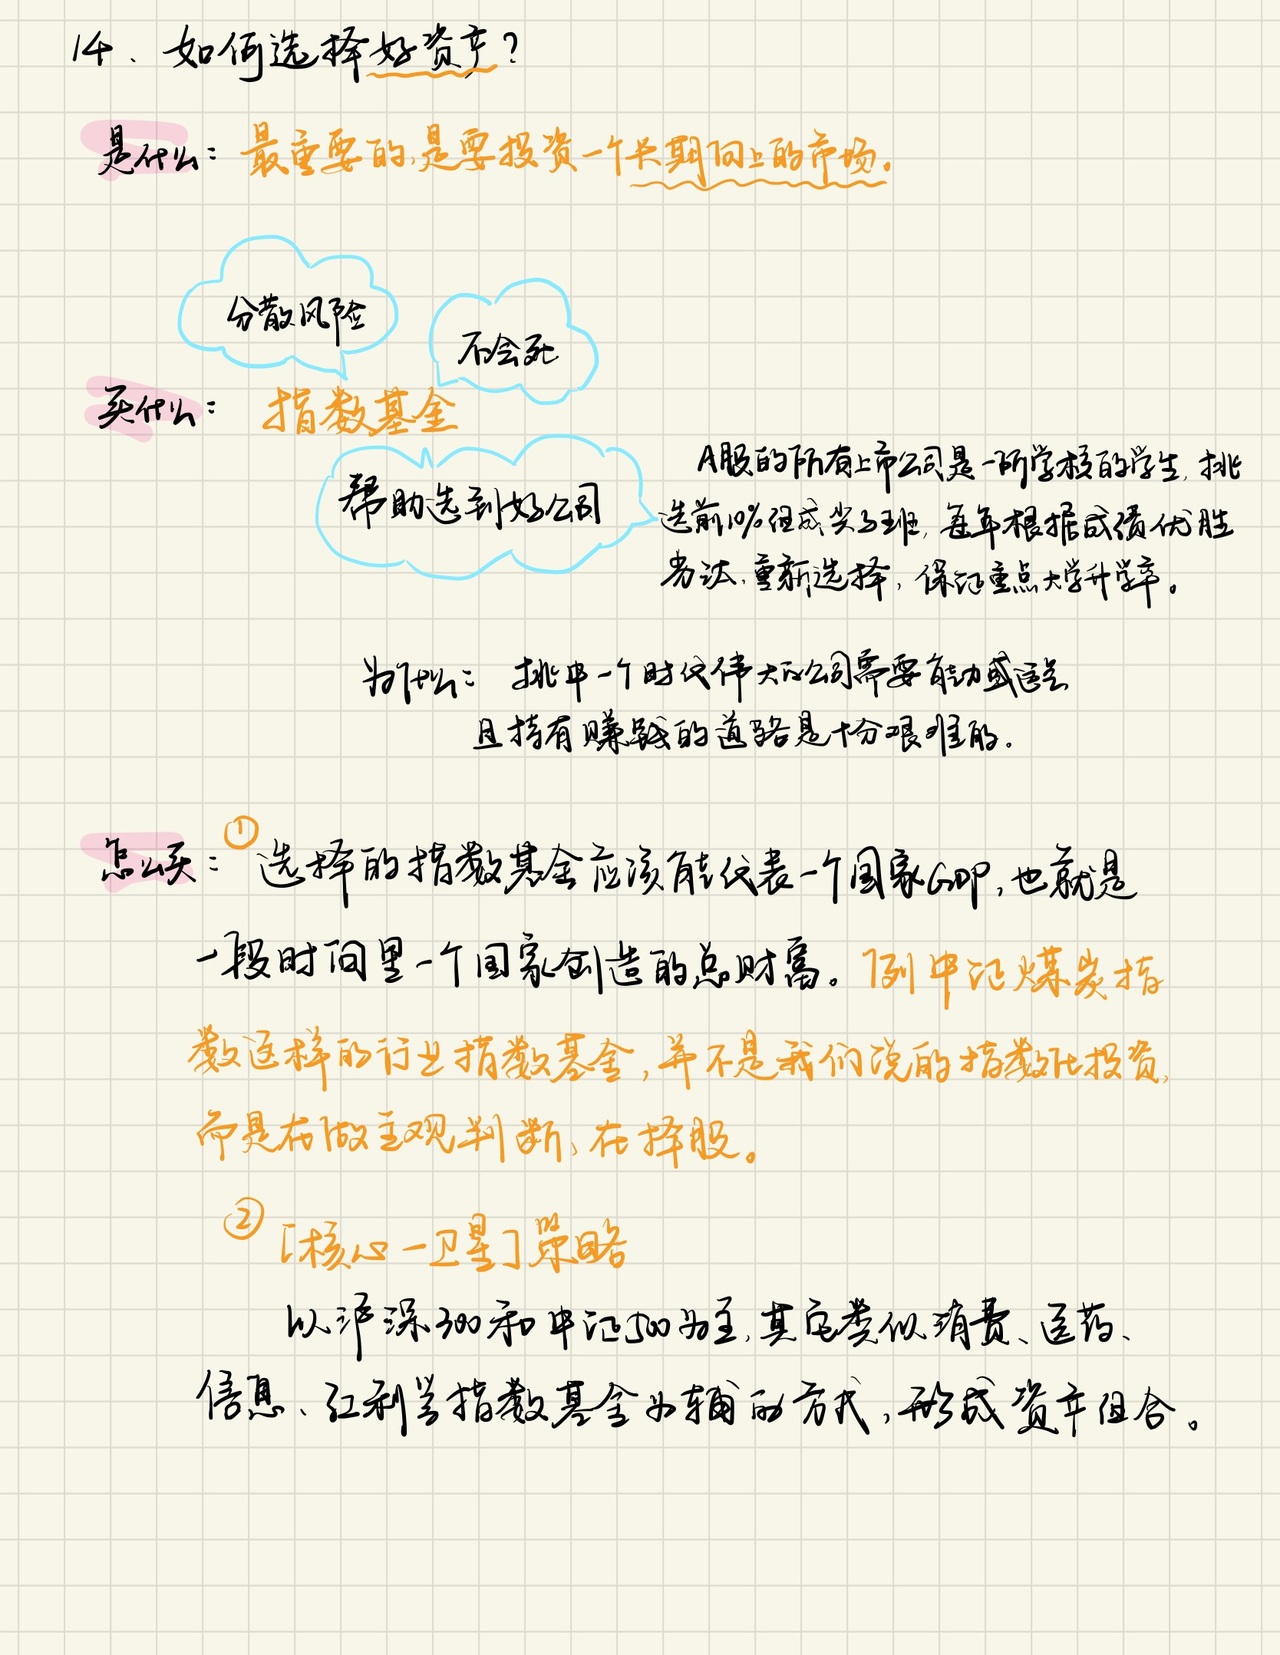 14、如何选择好资产?
是什么: 最重要的,是要投资一个长期向上的市场。
分散风险
不会死
买什么: 指数基金
帮助选到好公司
A股的所有上市公司是一所学校的学生,挑
选前10%组成尖子班,每年根据成绩优胜
劣汰,重新选择,保证重点大学升学率。
为什么: 挑中一个时代伟大的公司需要能力或运气
且持有赚钱的道路是十分艰难的。
怎么买: ① 选择的指数基金应该能代表一个国家GDP,也就是
一段时间里一个国家创造的总财富。例中证煤炭指
数这样的行业指数基金,并不是我们说的指数化投资,
而是在做主观判断,在择股。
② 「核心一卫星」策略
以沪深300和中证500为主,其它类似消费、医药、
信息、红利等指数基金为辅的方式,形成资产组合。